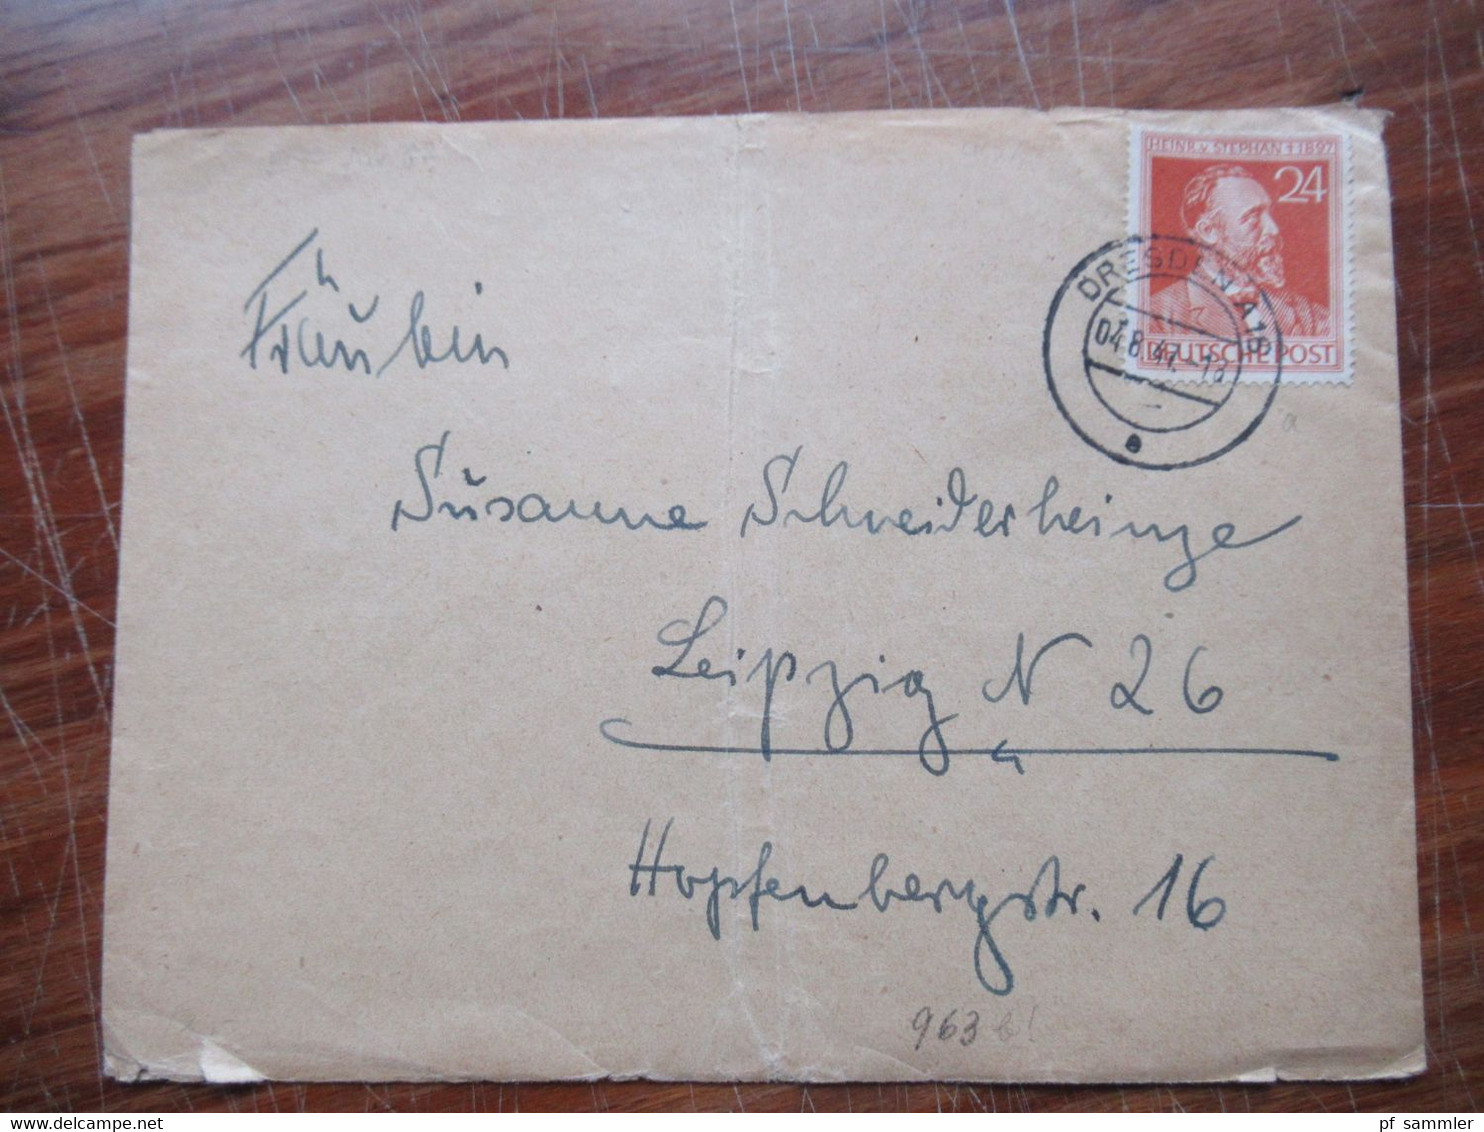 HEINR. v. STEPHAN † 1897
24
DEUTSCHE POST
DRESDEN A16
04.8.47.-18
a
Fräulein
Susanne Schneiderheinze
Leipzig N 26
Hopfenbergstr. 16
963 b!
a
pf sammler